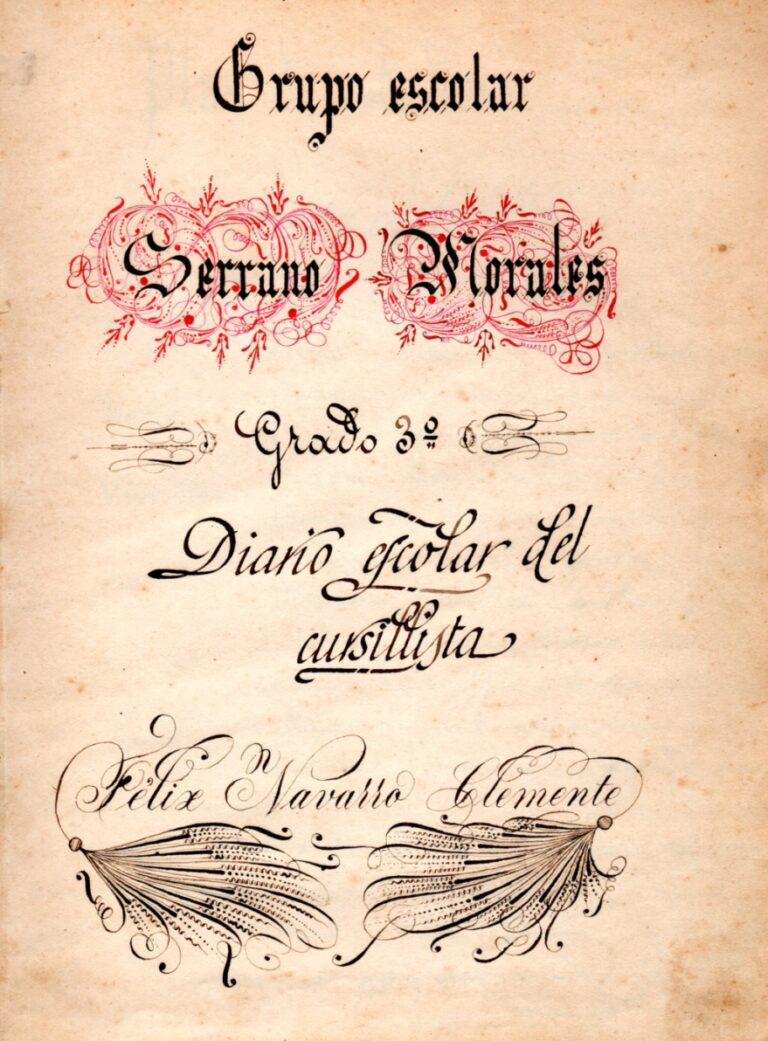 Grupo escolar
Serrano Morales
Grado 3º
Diario escolar del
cursillista
Félix Navarro Clemente